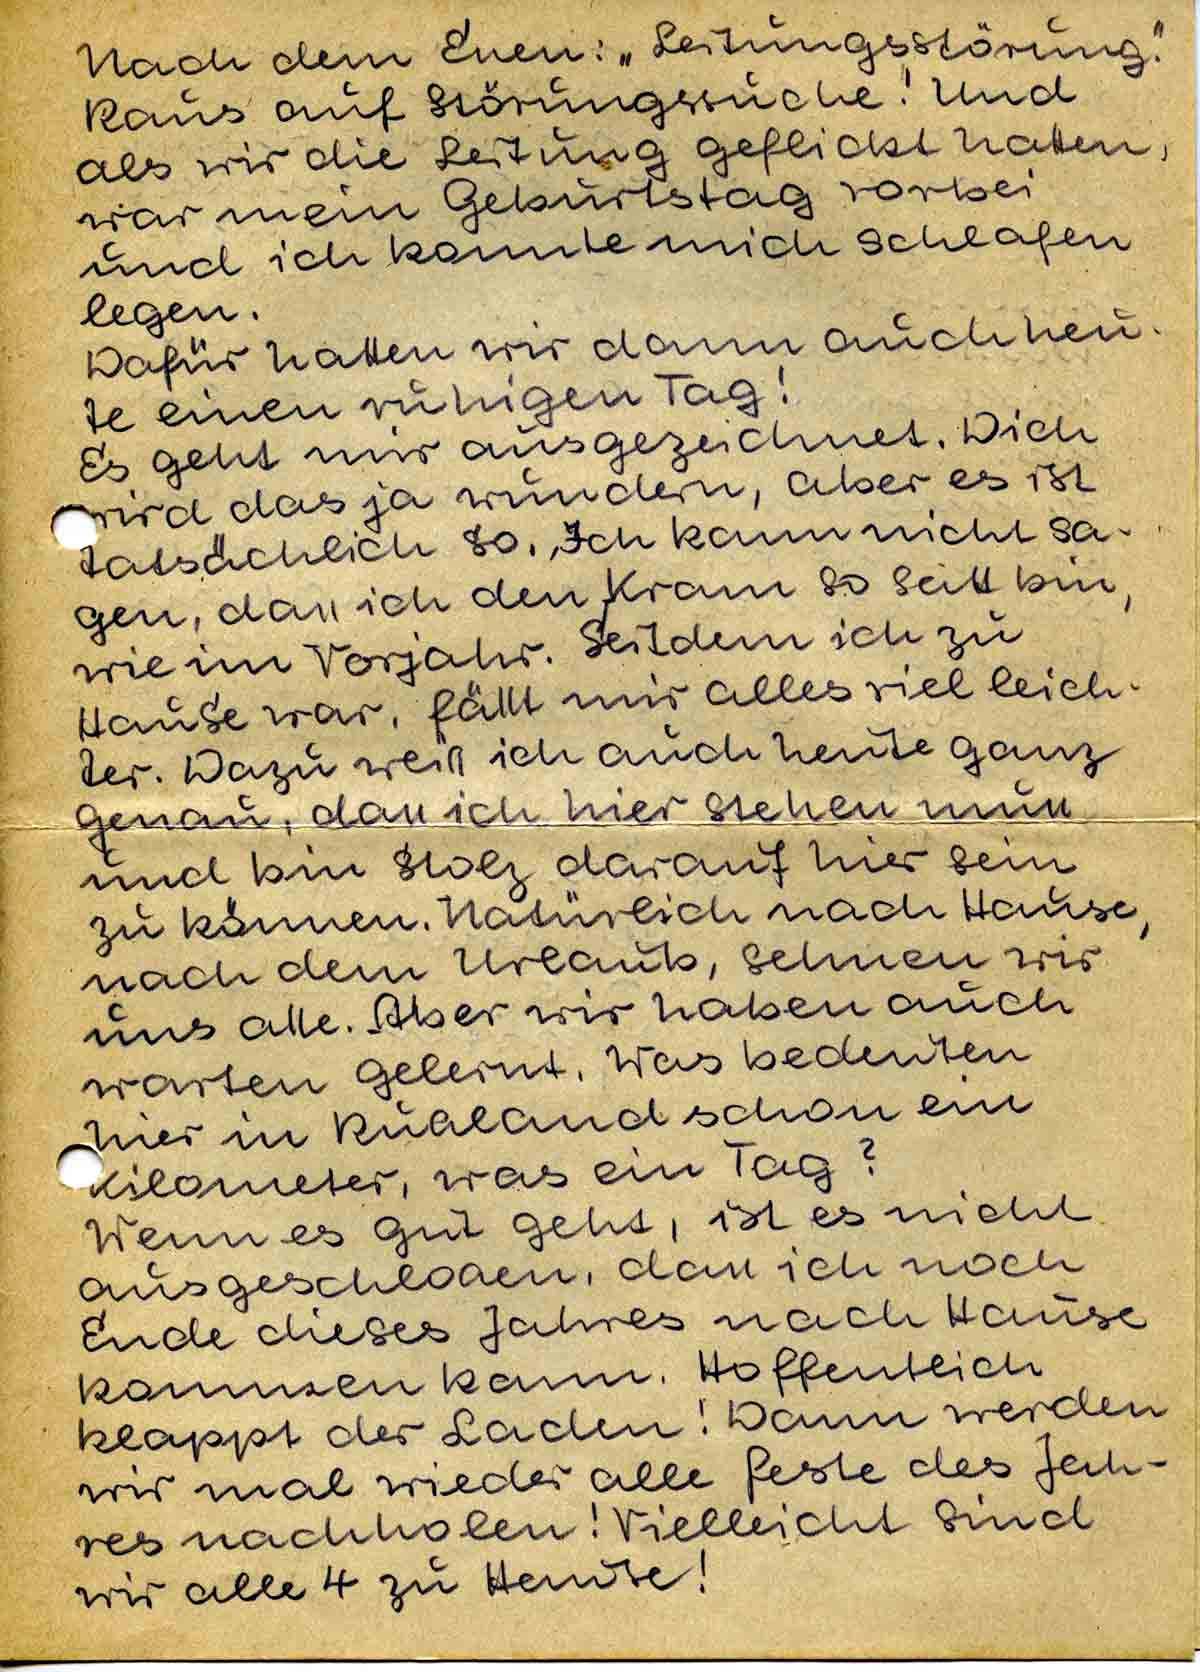 Nach dem Essen: „Leitungsstörung."
Raus auf Störungssuche! Und
als wir die Leitung geflickt hatten,
war mein Geburtstag vorbei
und ich konnte mich schlafen
legen.
Dafür hatten wir dann auch heu-
te einen ruhigen Tag!
Es geht mir ausgezeichnet. Dich
wird das ja wundern, aber es ist
tatsächlich so. Ich kann nicht sa-
gen, dass ich den Kram so satt bin,
wie im Vorjahr. Seitdem ich zu
Hause war, fällt mir alles viel leich-
ter. Dazu weiß ich auch heute ganz
genau, dass ich hier stehen muss
und bin stolz darauf hier sein
zu können. Natürlich nach Hause,
nach dem Urlaub, sehnen wir
uns alle. Aber wir haben auch
warten gelernt. Was bedeuten
hier in Rußland schon ein
Kilometer, was ein Tag?
Wenn es gut geht, ist es nicht
ausgeschlossen, dass ich noch
Ende dieses Jahres nach Hause
kommen kann. Hoffentlich
klappt der Laden! Dann werden
wir mal wieder alle Feste des Jah-
res nachholen! Vielleicht sind
wir alle 4 zu Hause!